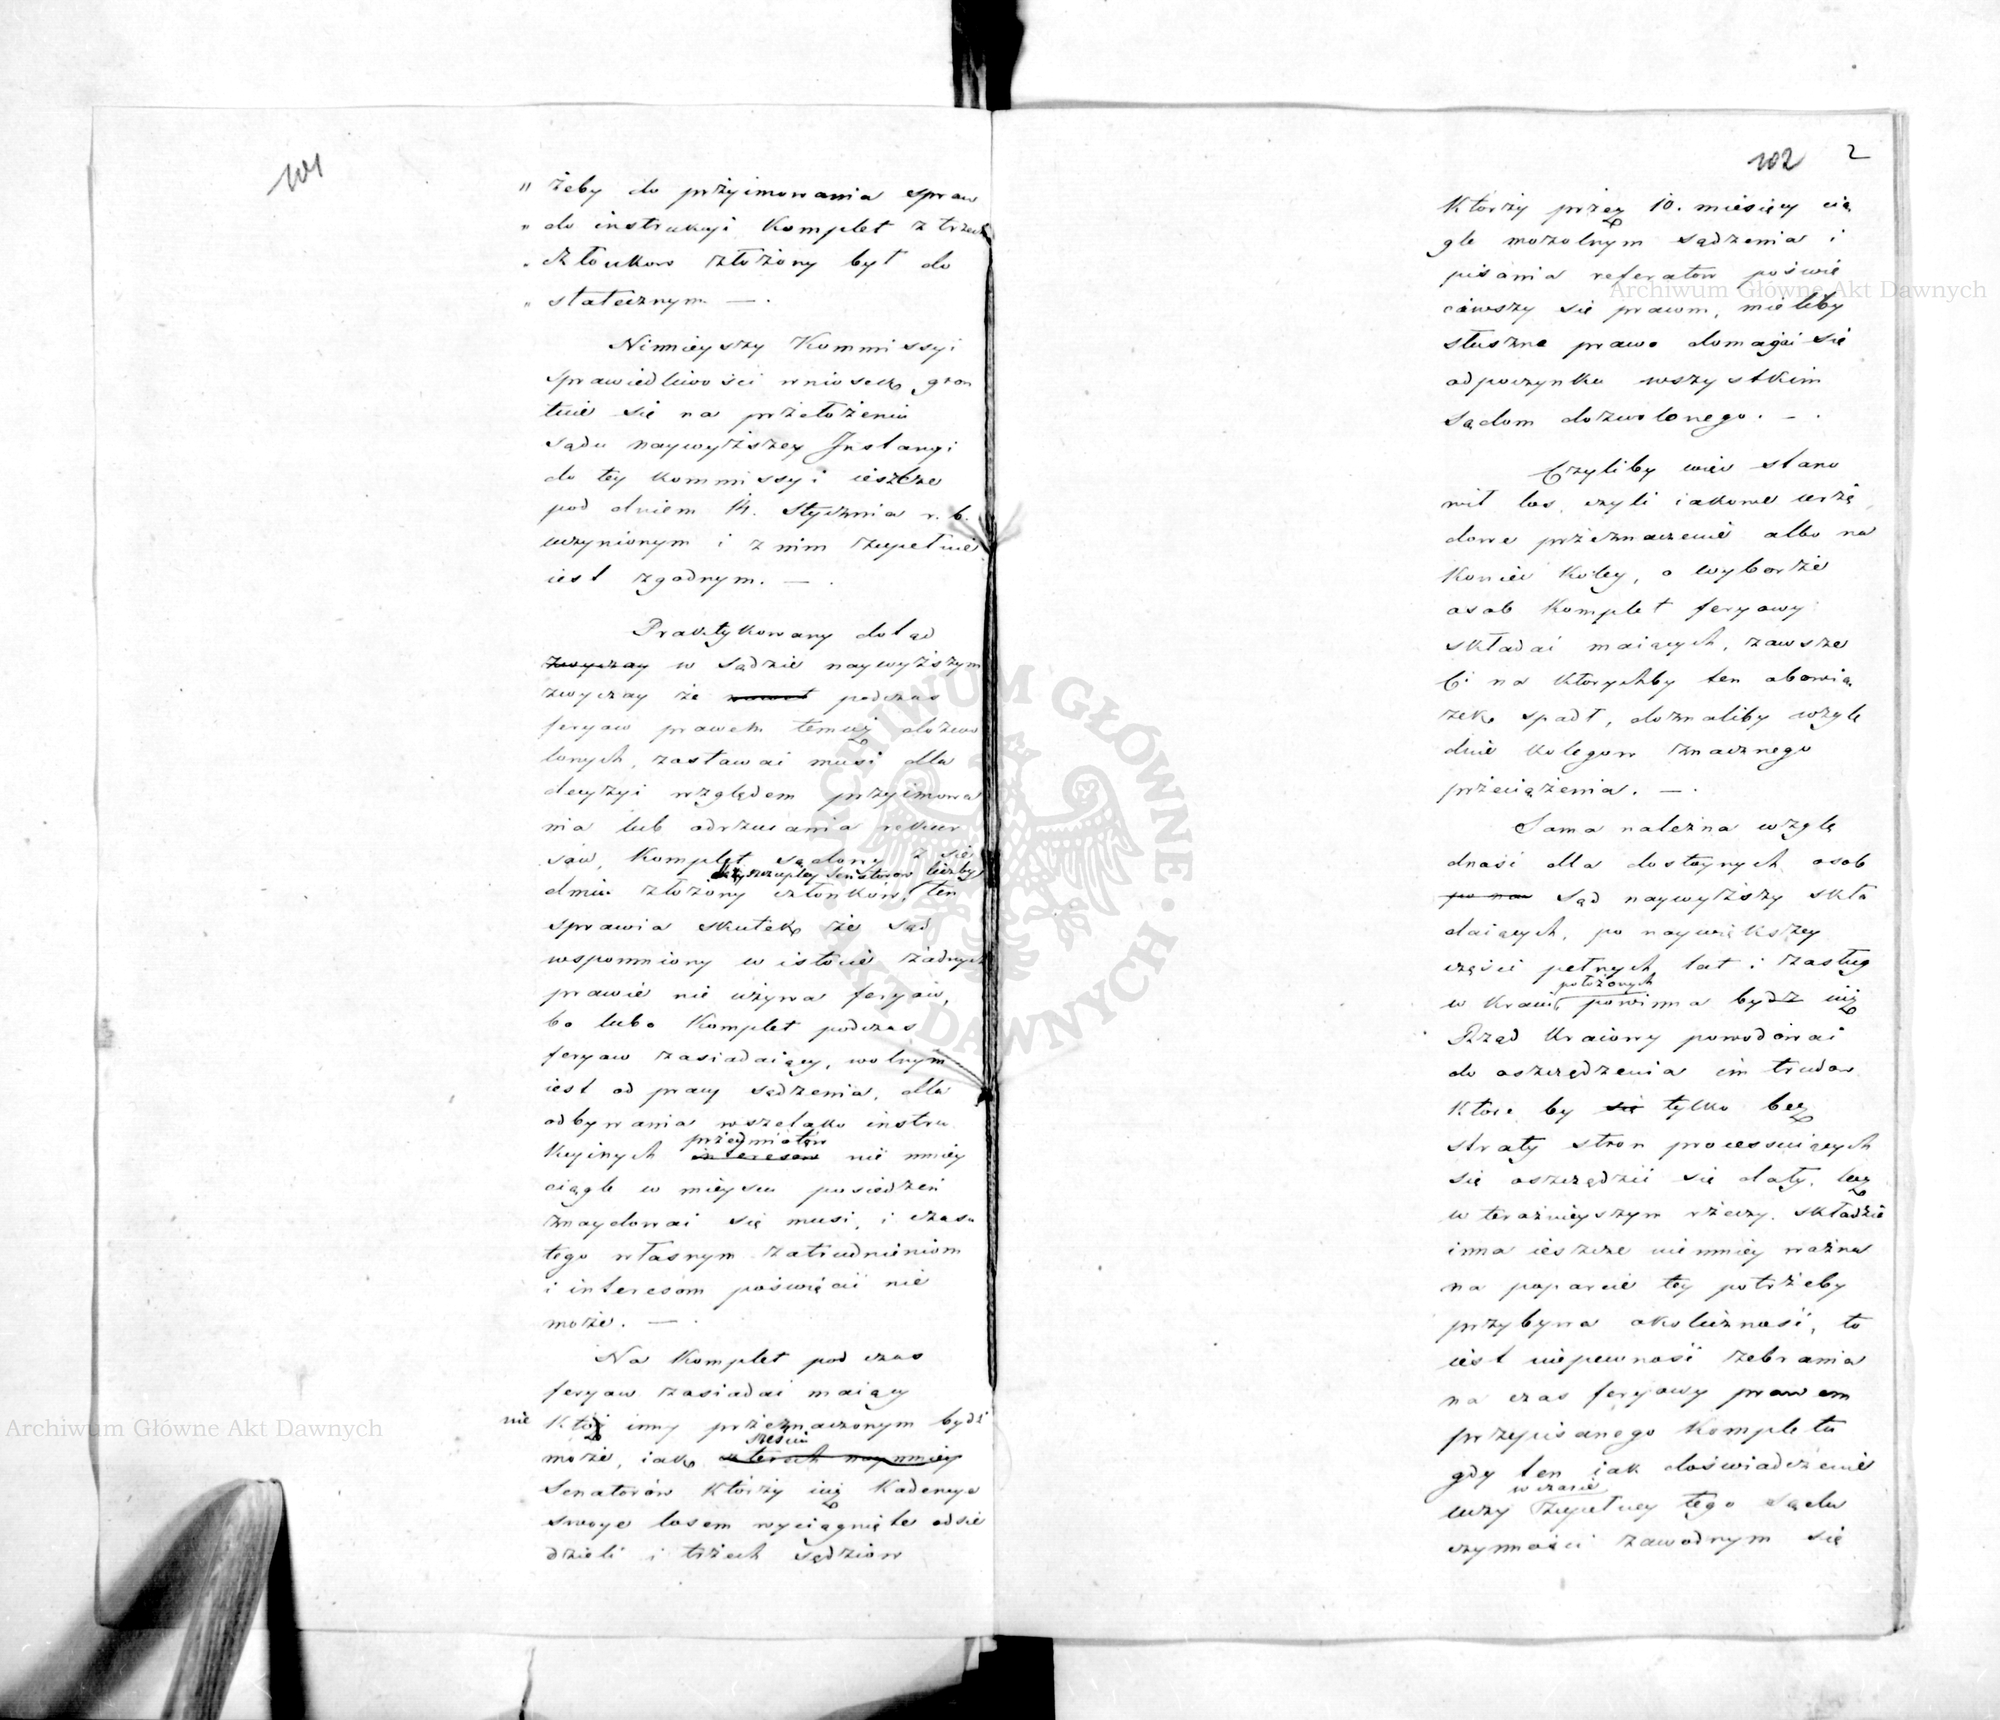 101
„ żeby do przyimowania spraw
„ do instrukcyi Komplet z trzech
„ członkow złożony był do
„ statecznym. — .
Ninieyszy Kommissyi
sprawiedliwości wniosek gron
tuie się na przełożeniu
Sądu naywyższey Instancyi
do tey Kommissyi ieszcze
pod dniem 14. Stycznia r. b.
uczynionym i z nim zupełnie
iest zgodnym. — .
Praktykowany dotąd
zwyczay w Sądzie naywyższym
zwyczay że nawet podczas
feryow prawem temuż dozwo
lonych, zostawać musi dla
decyzyi względem przyimowa
nia lub odrzucania rekur
sów, Komplet sądowy z sie
przy szczupłey Senatorow liczby
dmiu złożony członków, ten
sprawia skutek że Sąd
wspomniony w istocie żadnych
prawie nie używa feryów,
bo lubo Komplet podczas
feryow zasiadaiący, wolnym
iest od pracy sądzenia, dla
odbywania wszelako instru
przedmiotów
kcyinych interesow nie mniey
ciągle w mieyscu posiedzeń
znaydować się musi, i czasu
tego własnym zatrudnieniom
i interesom poświęcić nie
może. — .
Na Komplet pod czas
feryow zasiadać maiący
nie Któż inny przeznaczonym bydź
sześciu
może, iak czterech naymniey
Senatorów Którzy iuż Kadencye
swoye losem wyciągnięte odsie
dzieli i trzech Sędziow
102 2
Którzy przez 10. miesięcy cią
gle mozolnym sądzenia i
pisania referatow poświę
ciwszy się pracom, mieliby
słuszne prawo domagać się
odpoczynku wszystkim
Sądom dozwolonego. — .
Czyliby więc stano
wił los, czyli iakowe urzę
dowe przeznaczenie albo na
koniec Koley, o wyborze
osob Komplet feryowy
składać maiących, zawsze
Ci na Ktorychby ten obowią
zek spadł, doznaliby wzglę
dnie kolegow znacznego
przeciążenia. — .
Sama należna wzglę
dność dla dostoynych osob
po na Sąd naywyższy skła
daiących, po naywiększey
części pełnych lat i zasług
położonych
w Kraiu powinna bydź iuż
Rząd Kraiowy powodować
do oszczędzenia im trudow
Ktore by się tylko bez
straty stron processuiących
się oszczędzić się dały, lecz
w teraźnieyszym rzeczy składzie
inna ieszcze niemniey ważna
na poparcie tey potrzeby
przybywa okoliczność, to
iest niepewność zebrania
na czas feryowy prawem
przepisanego Kompletu
gdy ten iak doświadczenie
w czasie
uczy zupełney tego Sądu
czynności zawodnym się
Archiwum Główne Akt Dawnych
Archiwum Główne Akt Dawnych
ARCHIWUM GŁÓWNE · AKT DAWNYCH ·